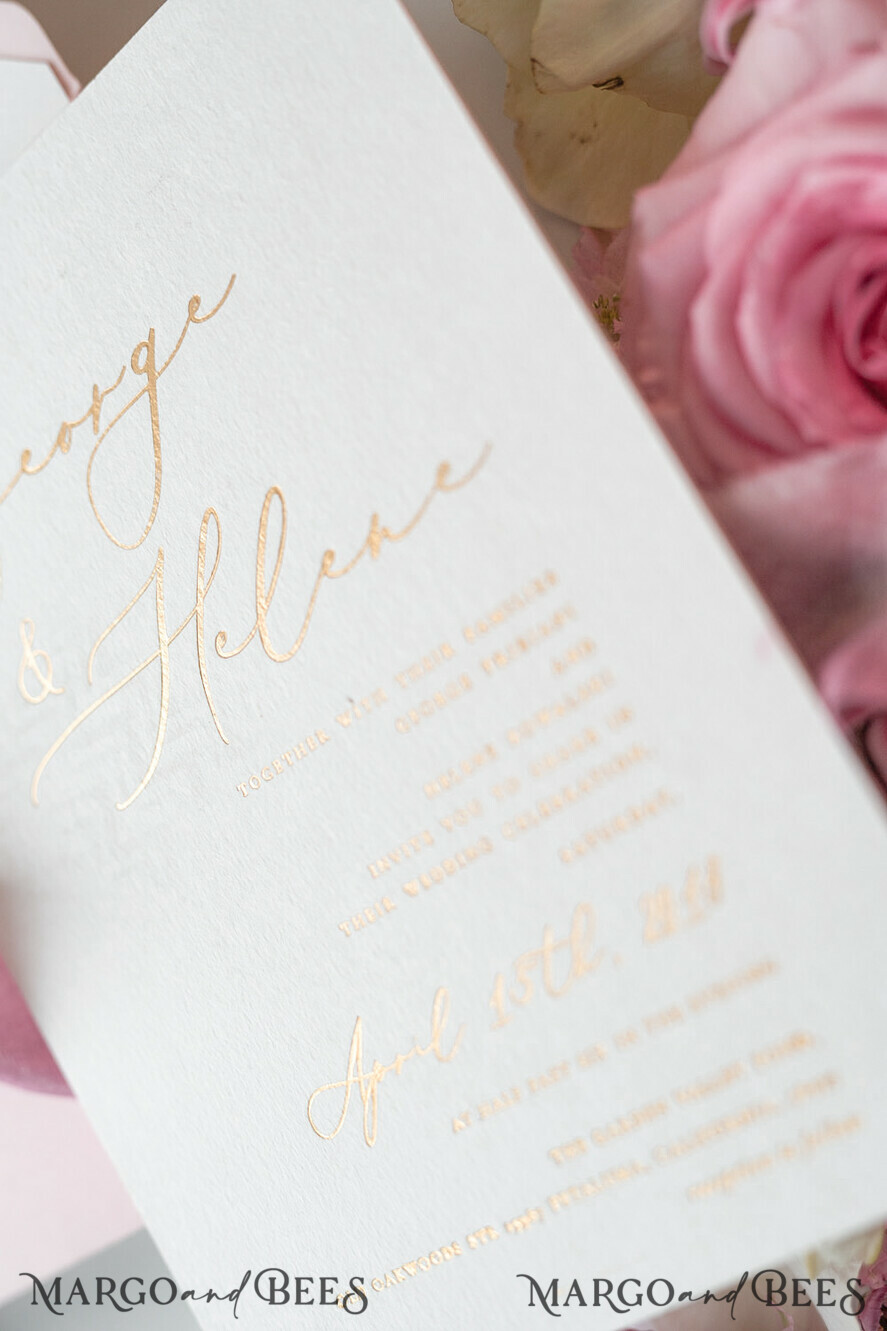 George
& Helene
TOGETHER WITH THEIR FAMILIES
GEORGE
AND
HELENE
INVITE YOU TO
THEIR WEDDING CELEBRATION,
SATURDAY,
April 15th,
AT HALF PAST SIX IN THE EVENING
THE GARDEN VALLEY
OAKWOODS STR PETALUMA, CALIFORNIA,
reception to follow
MARGOandBEES MARGOandBEES